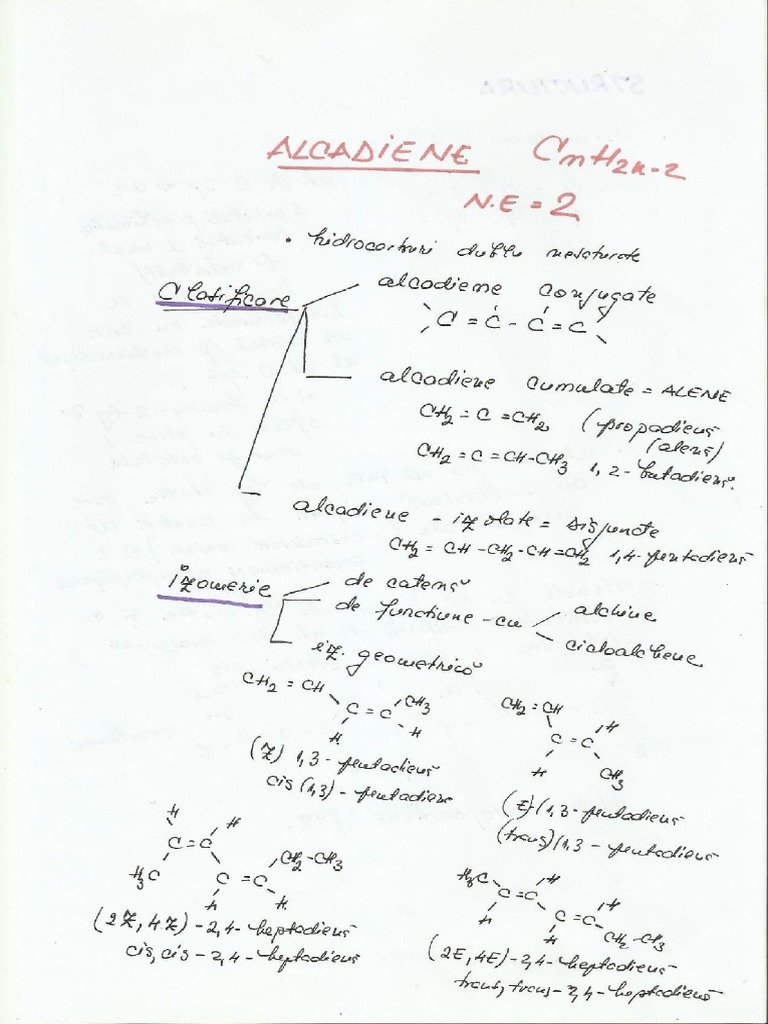 ALCADIENE CnH2n-2
N.E = 2
• hidrocarburi dublu nesaturate
Clasificare
alcadiene conjugate
C = C - C = C
alcadiene cumulate = ALENE
CH2 = C = CH2 (propadienă
(alenă)
CH2 = C = CH-CH3 1,2-butadienă.
alcadiene - izolate = disjuncte
CH2 = CH - CH2 - CH = CH2 1,4-pentadienă
izomerie
de catenă
de funcțiune - cu
alchine
cicloalchene
iz. geometrică
CH2 = CH
C = C
CH3
H
H
(Z) 1,3-pentadienă
cis (1,3) - pentadienă
CH2 = CH
H
C = C
H
CH3
(E)-(1,3-pentadienă
(trans)(1,3 - pentadienă
H
H
C = C
H3C
C = C
CH2-CH3
H
H
(2Z, 4Z) - 2,4-heptadienă
cis, cis - 2,4-heptadienă
H3C
H
C = C
H
H
C = C
H
CH2-CH3
(2E, 4E) - 2,4-heptadienă
trans, trans - 2,4-heptadienă